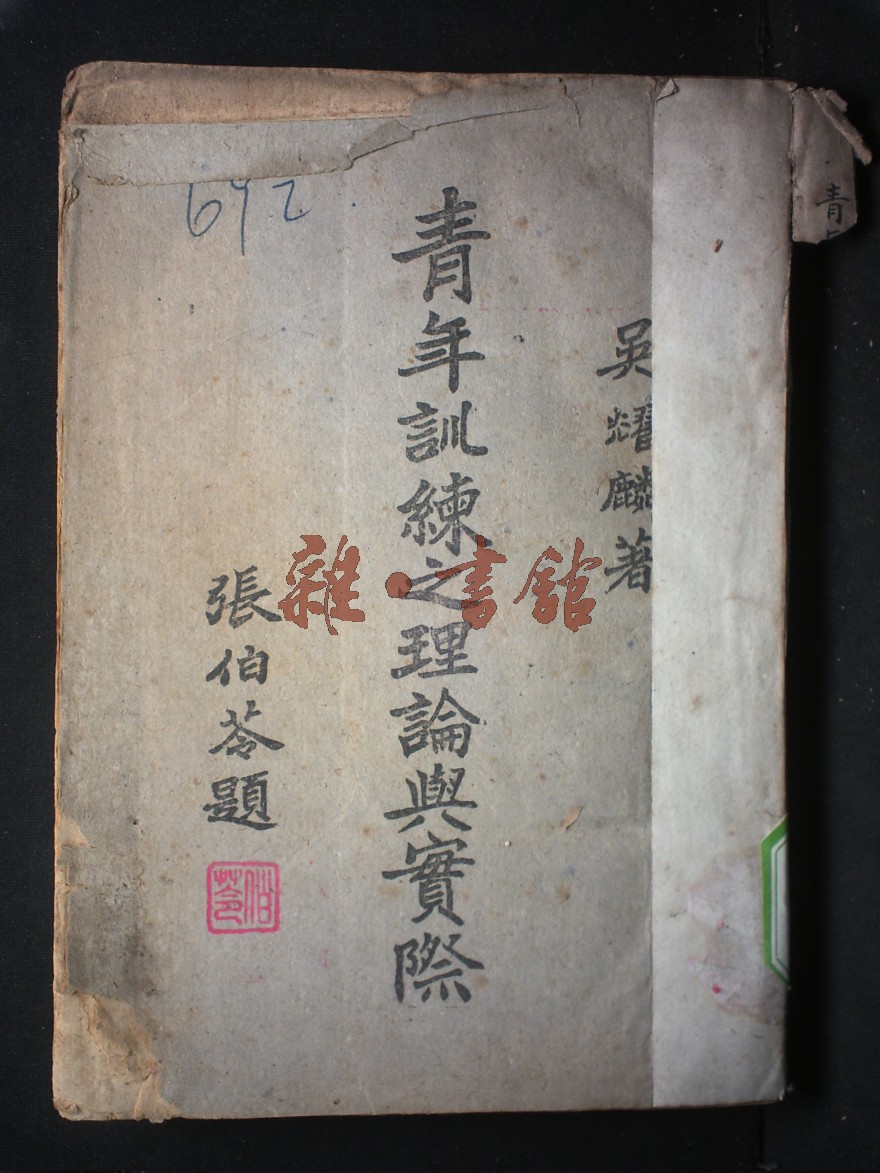 青
吳耀麟著
青年訓練之理論與實際
張伯苓題
伯苓
692
雜·書館